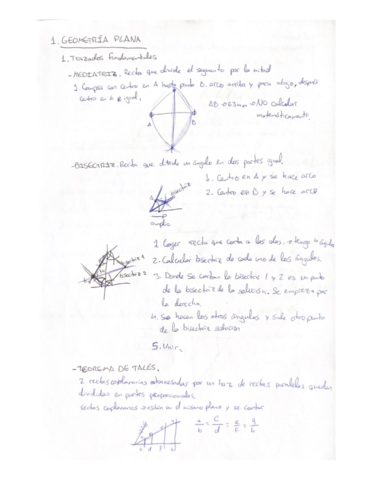 1. GEOMETRÍA PLANA
1. Trazados fundamentales
- MEDIATRIZ. Recta que divide el segmento por la mitad
1. Compas con centro en A hasta punto B. arco arriba y para abajo, después
centro en B igual.
AB = 63mm → NO calcular
matemáticamente.
A B
- BISECTRIZ. Recta que divide un ángulo en dos partes igual.
1. Centro en A y se hace arco
2. Centro en B y se hace arco
bisectriz
1. Coger recta que corta a las dos. → tengo 4 ángulos
2. Calcular bisectriz de cada uno de los ángulos.
bisectriz 1
bisectriz 2
3. Donde se cortan la bisectriz 1 y 2 es un punto
de la bisectriz de la solución. Se empieza por
la derecha.
4. Se hacen los otros ángulos y sale otro punto
de la bisectriz solución
5. Unir.
- TEOREMA DE TALES.
2 rectas coplanarias atravesadas por un haz de rectas paralelas quedan
divididas en partes proporcionales.
rectas coplanarias → están en el mismo plano y se cortan
a/b = c/d = e/f = g/h